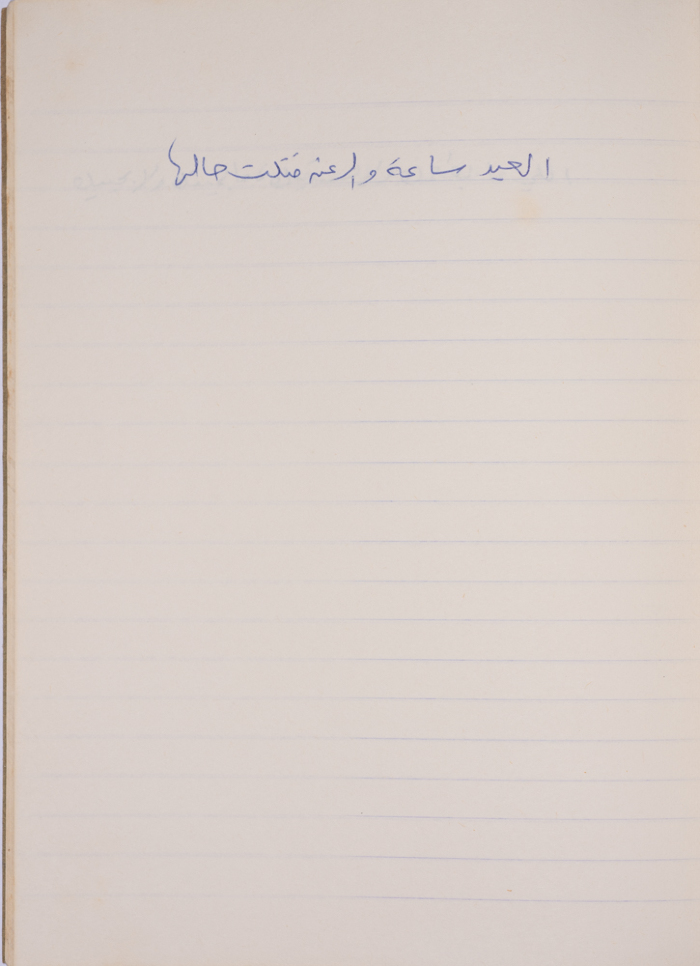 العيد ساعة والرعنه فتكت حالها